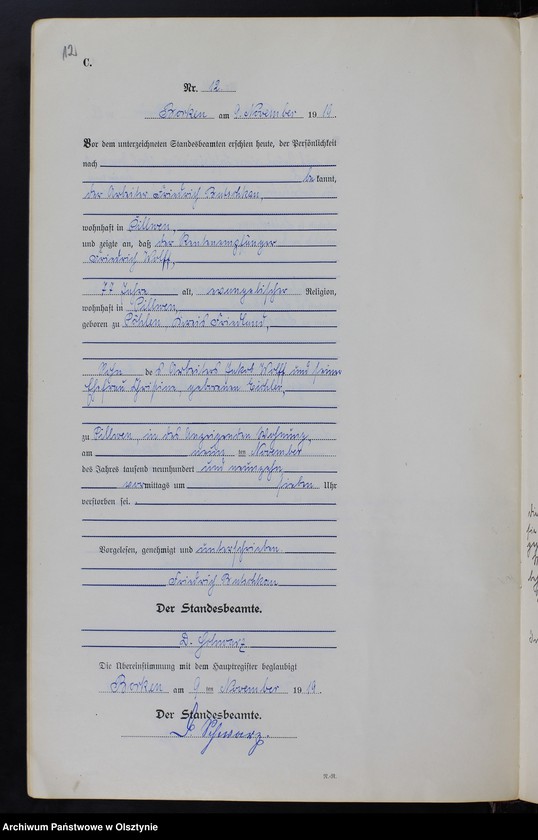 12
C.
Nr. 12.
Borken am 9. November 1919.
Vor dem unterzeichneten Standesbeamten erschien heute, der Persönlichkeit
nach
bekannt,
der Arbeiter Friedrich
wohnhaft in
und zeigte an, daß der Rentenempfänger
Friedrich Wolff,
77 Jahre alt, evangelischer Religion,
wohnhaft in
geboren zu Kreis Friedland,
Sohn des Arbeiters Jakob Wolff und seiner
Ehefrau Christine, geborenen
zu in des Anzeigenden Wohnung,
am neun ten November
des Jahres tausend neunhundert und neunzehn
vormittags um sieben Uhr
verstorben sei.
Vorgelesen, genehmigt und unterschrieben
Friedrich
Der Standesbeamte.
Schwarz
Die Übereinstimmung mit dem Hauptregister beglaubigt
Borken am 9 ten November 1919.
Der Standesbeamte.
Schwarz.
R.-R.
Archiwum Państwowe w Olsztynie